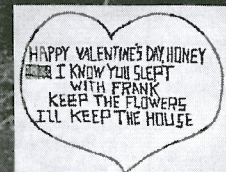 HAPPY VALENTINE'S DAY, HONEY
I KNOW YOU SLEPT
WITH FRANK
KEEP THE FLOWERS
I'LL KEEP THE HOUSE